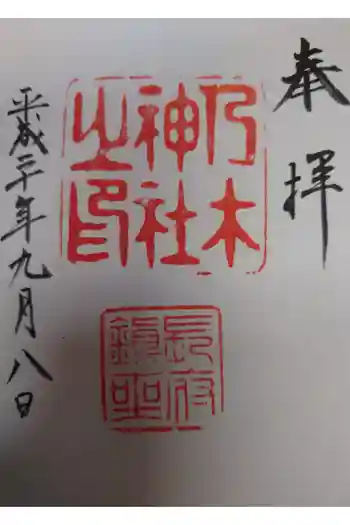 奉拝
乃木
神社
之印
長府
鎮座
平成三十年九月八日